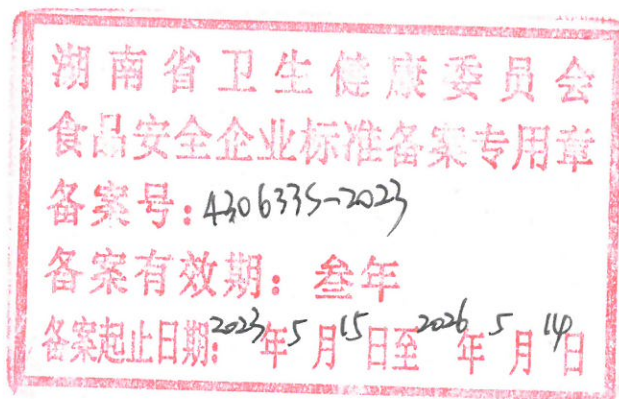 湖南省卫生健康委员会
食品安全企业标准备案专用章
备案号：4306335-2023
备案有效期：叁年
备案起止日期：2023年5月15日至2026年5月14日